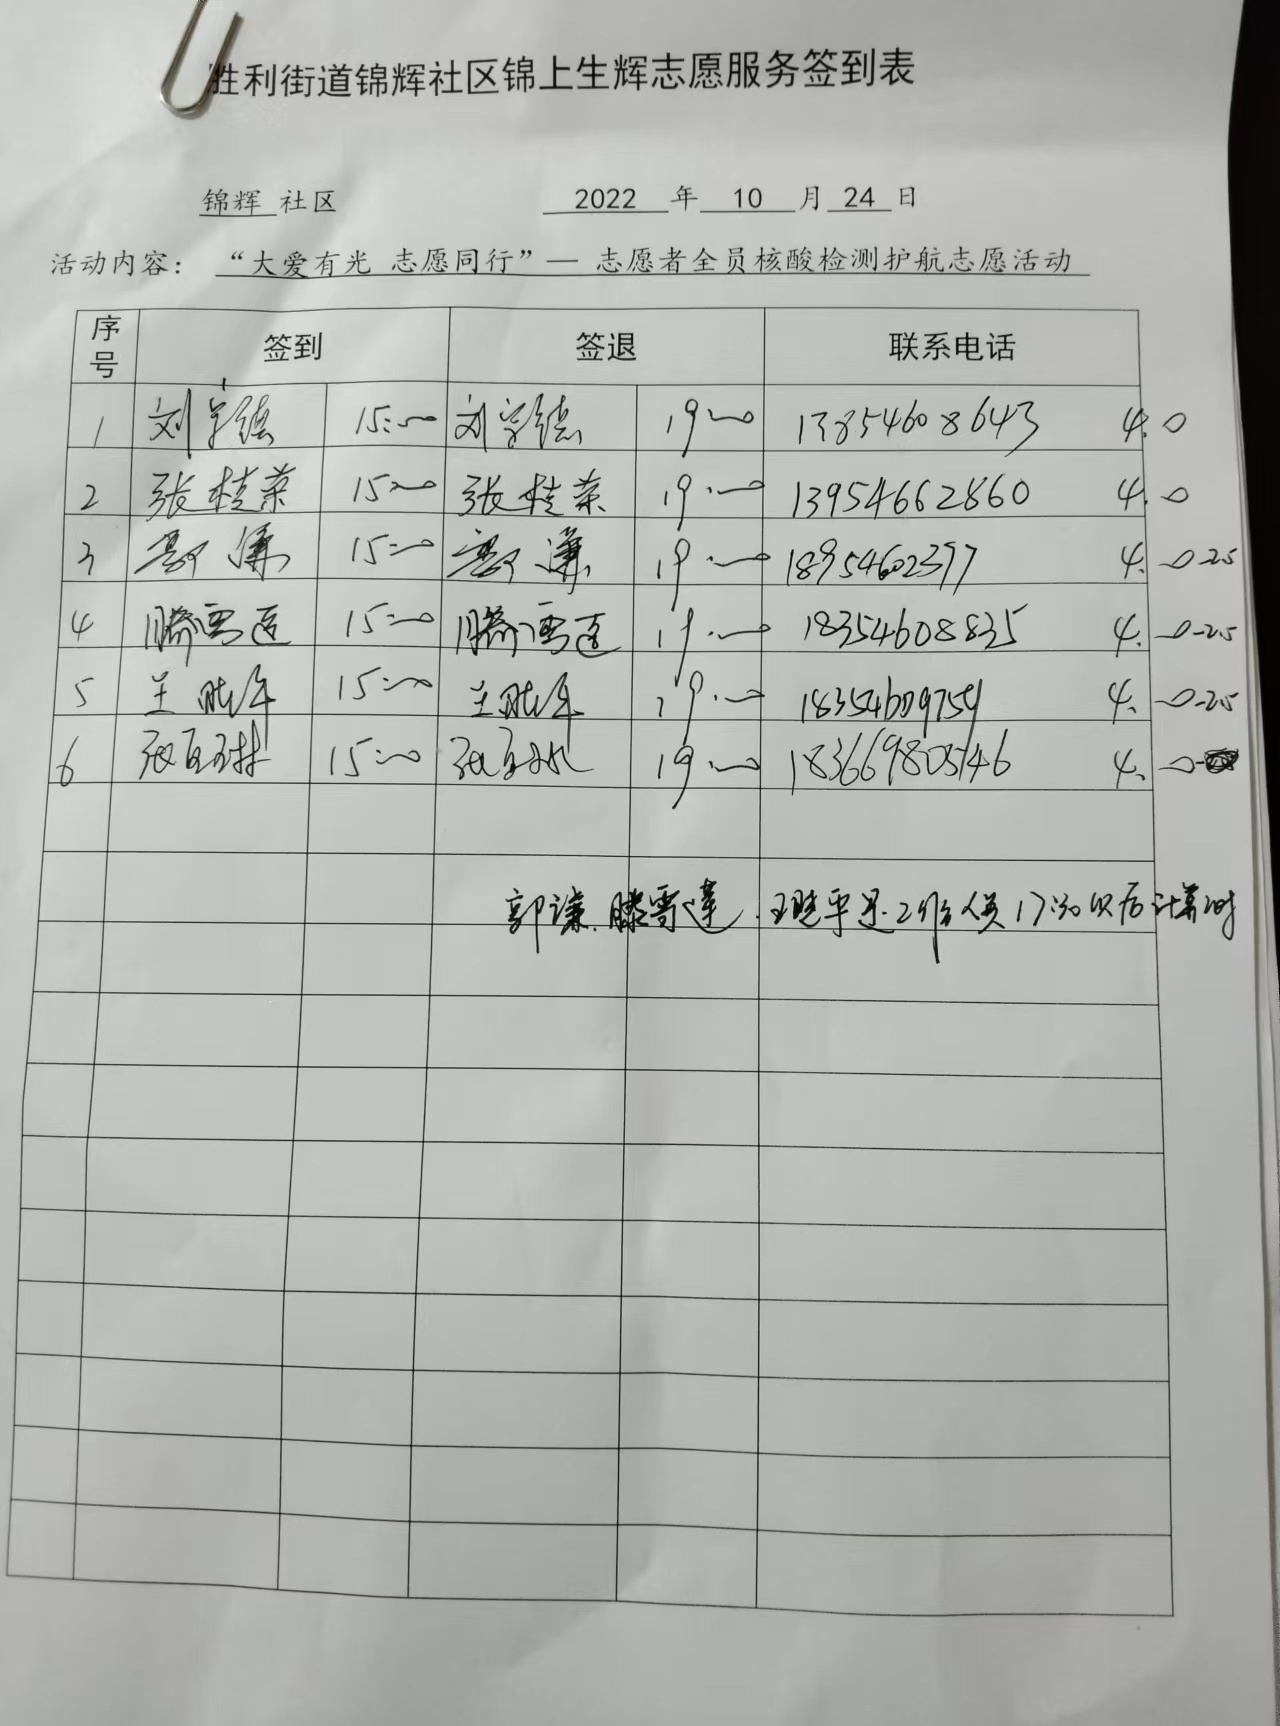 胜利街道锦辉社区锦上生辉志愿服务签到表
锦辉 社区 2022 年 10 月 24 日
活动内容： “大爱有光 志愿同行”— 志愿者全员核酸检测护航志愿活动
序号 签到 签退 联系电话
1 刘学德 15:00 刘学德 19:00 13854608643 4.0
2 张桂荣 15:00 张桂荣 19:00 13954662860 4.0
3 郭谦 15:00 郭谦 19:00 18954602397 4.0-2.5
4 滕雪莲 15:00 滕雪莲 19:00 18354608835 4.0-2.5
5 王晓平 15:00 王晓平 19:00 18354609759 4.0-2.5
6 15:00 19:00 18366980546 4.0
郭谦.滕雪莲.王晓平是工作人员17:30以后计算时